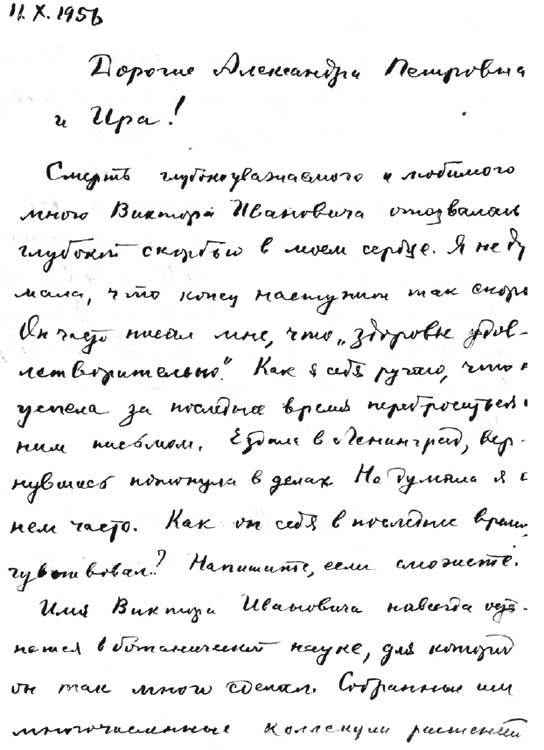 11. X. 1956
Дорогие Александра Петровна
и Ира!
Смерть глубокоуважаемого и любимого
мною Виктора Ивановича отозвалась
глубокой скорбью в моем сердце. Я не ду
мала, что конец наступит так скоро
Он часто писал мне, что „здоровье удов-
летворительно“. Как я себя ругаю, что н
успела за последнее время переброситься с
ним письмом. Ездила в Ленинград, вер-
нувшись потонула в делах Но думала я о
нем часто. Как он себя в последнее время
чувствовал? Напишите, если сможете.
Имя Виктора Ивановича навсегда оста-
нется в ботанической науке, для которой
он так много сделал. Собранные им
многочисленные коллекции растений